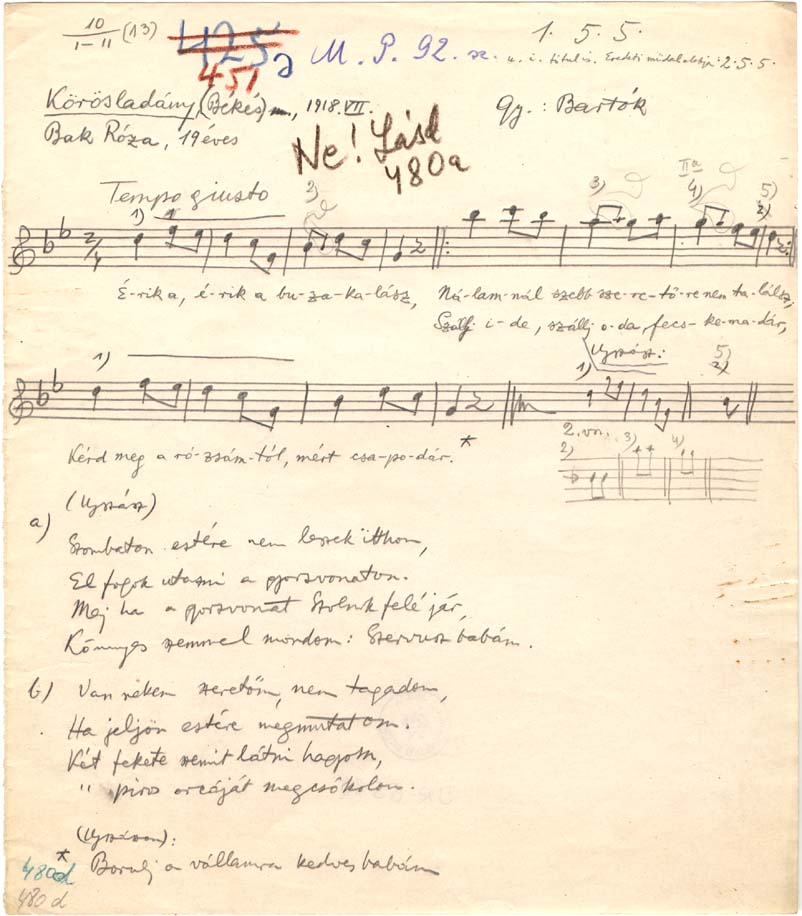 10
I–II (13)
425
451
M. P. 92. sz.
1. 5. 5.
u. i. títul is. Eredeti 2. 5. 5.
Körösladány, (Békés) m., 1918. VII.
Gy.: Bartók
Bak Róza, 19 éves
Ne! Lásd
480a
Tempo giusto
1) 3) 3) IIa 4) 5) 2)
2/4
É-rik a, é-rik a bu-za-ka-lász, Ná-lam-nál szebb sze-re-tő-re nem ta-lálsz,
Szállj i-de, szállj o-da, fecs-ke-ma-dár,
(Ugyszász:
1) 1) 5) 2)
Kérd meg a ró-zsám-tól, mért csa-po-dár. *
2. vsz.
2) 3) 4)
a) Szombaton estére nem leszek itthon,
El fogok utazni a gyorsvonaton.
Mej ha a gorsvonat Szolnok felé jár,
Könnyes szemmel mondom: Szervusz babám.
b) Van nekem szeretőm, nem tagadom,
Ha jeljön estére megmutatom.
Két fekete szemit látni hagyom,
" piros orcáját megcsókolom.
* Borulj a vállamra kedves babám
480d
480 d